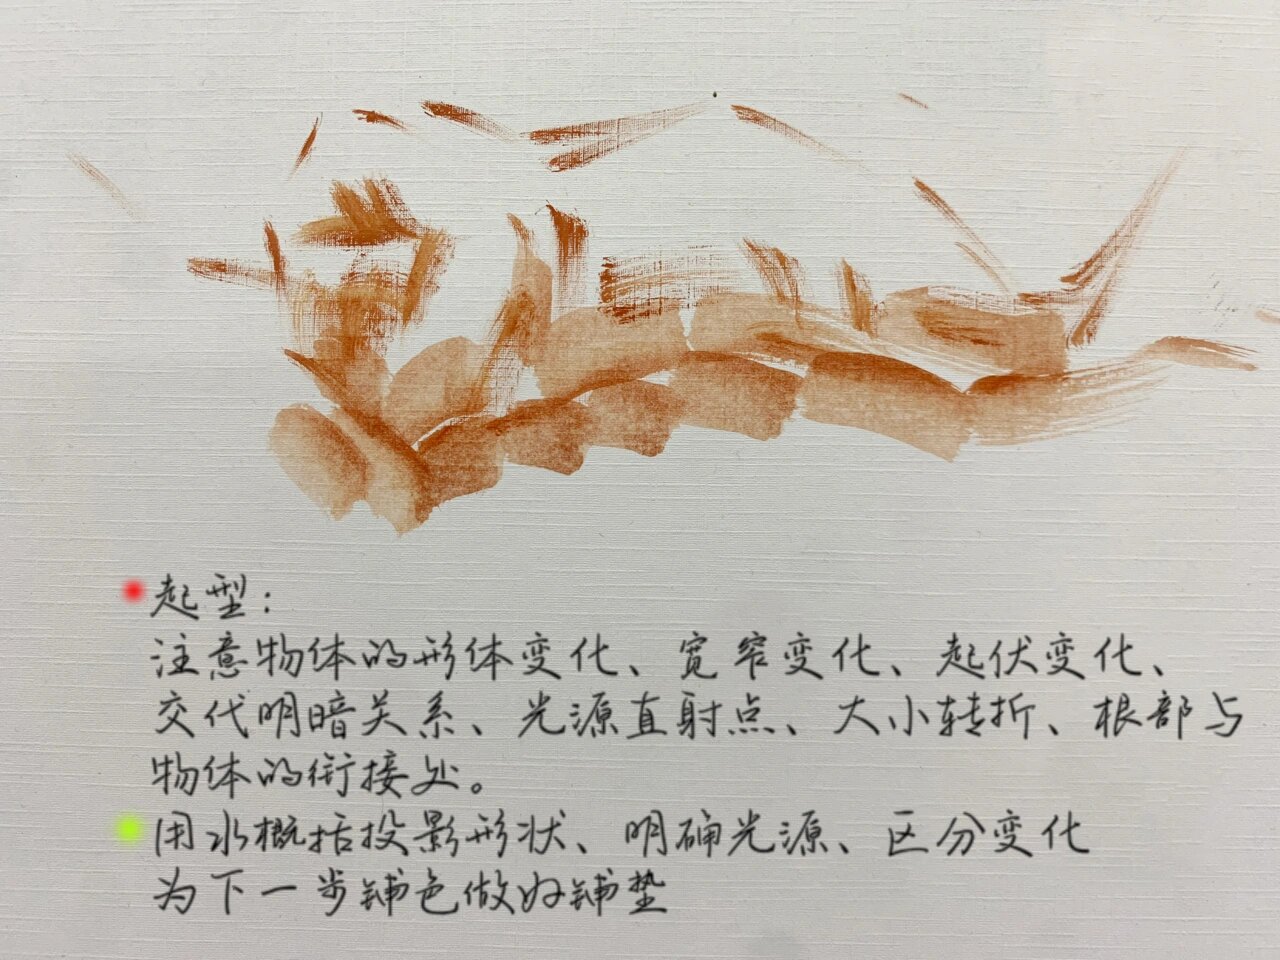 起型：
注意物体的形体变化、宽窄变化、起伏变化、
交代明暗关系、光源直射点、大小转折、根部与
物体的衔接处。
用水概括投影形状、明确光源、区分变化
为下一步铺色做好铺垫